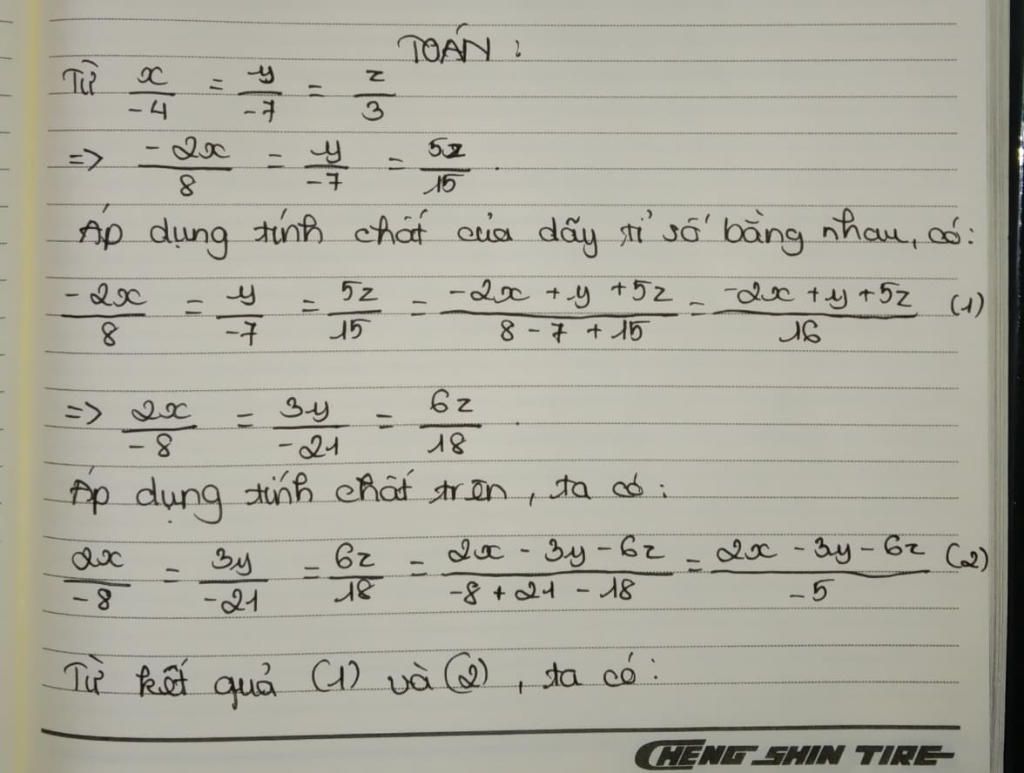 TOÁN :
Từ x/-4 = y/-7 = z/3
=> -2x/8 = y/-7 = 5z/15 .
Áp dụng tính chất của dãy tỉ số bằng nhau, có:
-2x/8 = y/-7 = 5z/15 = (-2x + y + 5z)/(8 - 7 + 15) = (-2x + y + 5z)/16 (1)
=> 2x/-8 = 3y/-21 = 6z/18 .
Áp dụng tính chất trên, ta có:
2x/-8 = 3y/-21 = 6z/18 = (2x - 3y - 6z)/(-8 + 21 - 18) = (2x - 3y - 6z)/-5 (2)
Từ kết quả (1) và (2), ta có:
CHENG SHIN TIRE